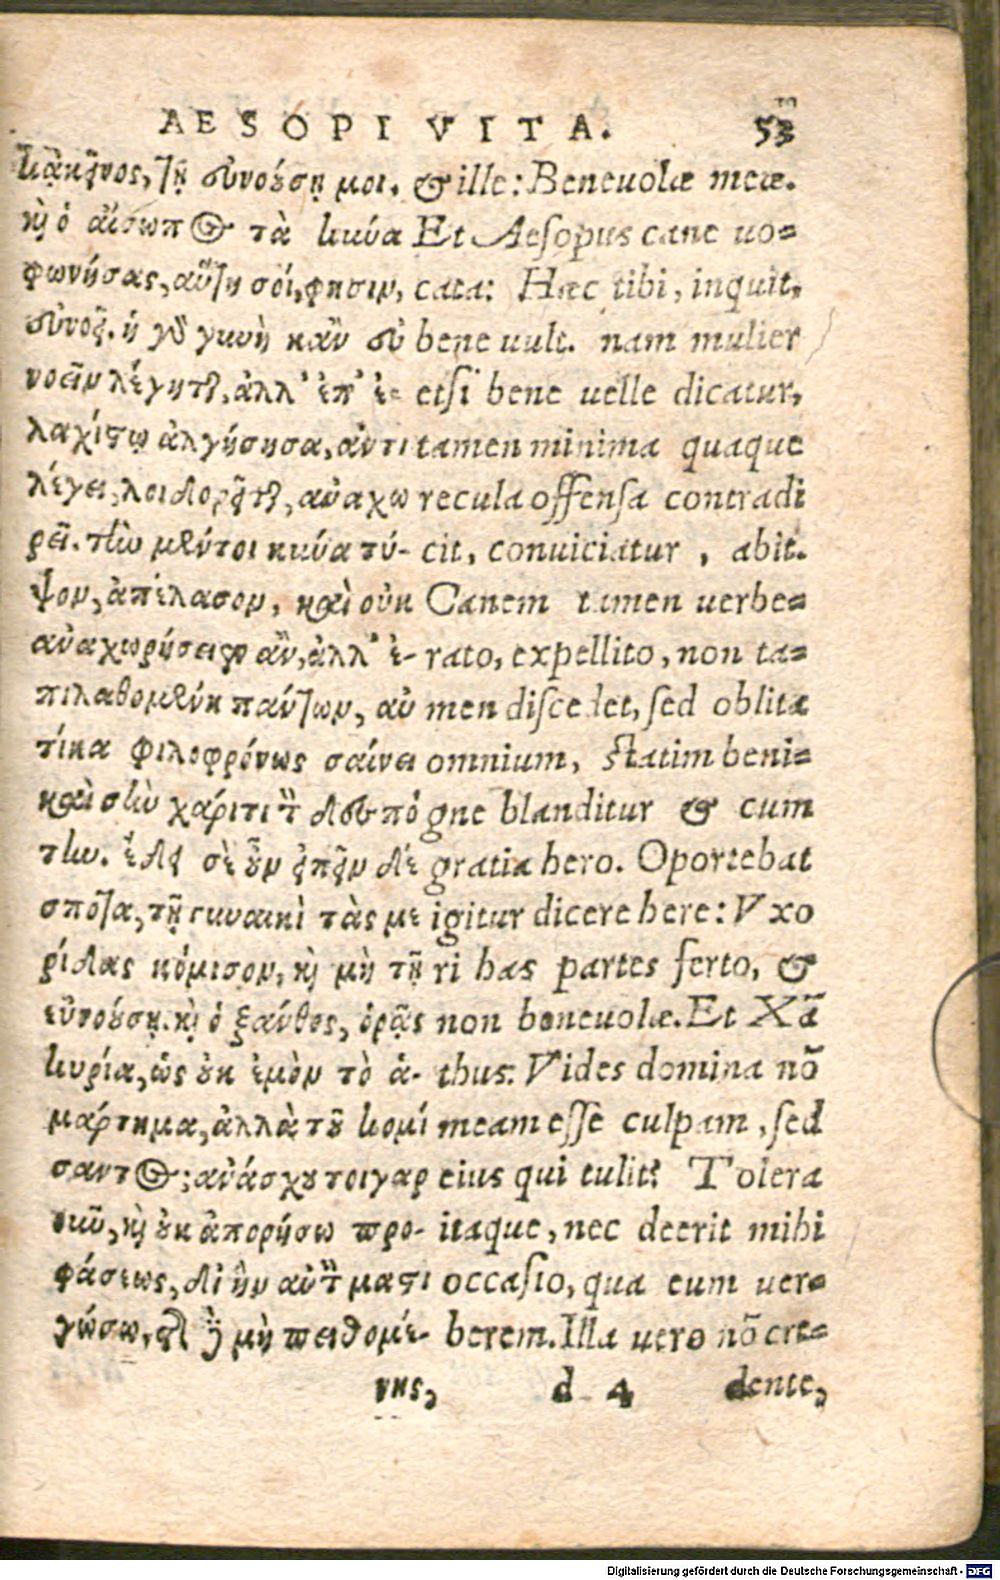 AESOPI VITA. 53
κἀκεῖνος, τῇ εὐνούσῃ μοι. & ille: Beneuolæ meæ.
καὶ ὁ αἴσωπος τὰ κύνα Et Aesopus cane uo=
φωνήσας, αὕτη σοί, φησιν, cata: Hæc tibi, inquit,
εὐνοεῖ. ἡ γὰρ γυνὴ κἂν εὐ bene uult. nam mulier
νοεῖν λέγηται, ἀλλ' ἐπ' ἐ= etsi bene uelle dicatur,
λαχίστῳ ἀλγήσησα, ἀντι tamen minima quaque
λέγει, λοιδορεῖται, ἀναχω recula offensa contradi
ρεῖ. τὴν μέντοι κύνα τύ- cit, conuiciatur, abit.
ψον, ἀπέλασον, καὶ οὐκ Canem tamen uerbe=
ἀναχωρήσειεν ἂν, ἀλλ' ἐ- rato, expellito, non ta=
πιλαθομένη πάντων, αὐ men discedet, sed oblita
τίκα φιλοφρόνως σαίνει omnium, statim beni=
καὶ σὺν χάριτι τὸν δεσπό gne blanditur & cum
την. ἔδει σὲ οὖν εἰπεῖν δέ gratia hero. Oportebat
σποτα, τῇ γυναικὶ τὰς με igitur dicere here: Vxo
ρίδας κόμισον, καὶ μὴ τῇ ri has partes ferto, &
εὐνούσῃ. καὶ ὁ ξάνθος, ὁρᾷς non beneuolæ. Et Xã
κυρία, ὡς οὐκ ἐμὸν τὸ ἁ- thus: Vides domina nõ
μάρτημα, ἀλλὰ τοῦ κομί meam esse culpam, sed
σαντος; ἀνάσχου τοιγαρ eius qui tulit? Tolera
οῦν, καὶ οὐκ ἀπορήσω προ- itaque, nec deerit mihi
φάσεως, δι' ἣν αὐτὸν μαστι occasio, qua eum uer=
γώσω, τῆς δὲ μὴ πειθομέ- berem. Illa uero nõ cre=
νης, d 4 dente,
Digitalisierung gefördert durch die Deutsche Forschungsgemeinschaft - DFG